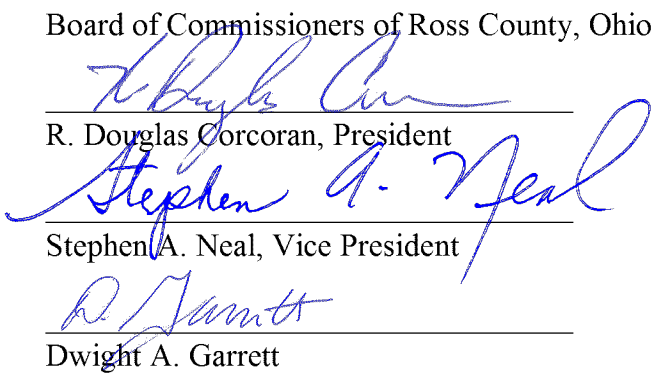 Board of Commissioners of Ross County, Ohio
R. Douglas Co
R. Douglas Corcoran, President
Stephen A. Neal
Stephen A. Neal, Vice President
D. Garrett
Dwight A. Garrett